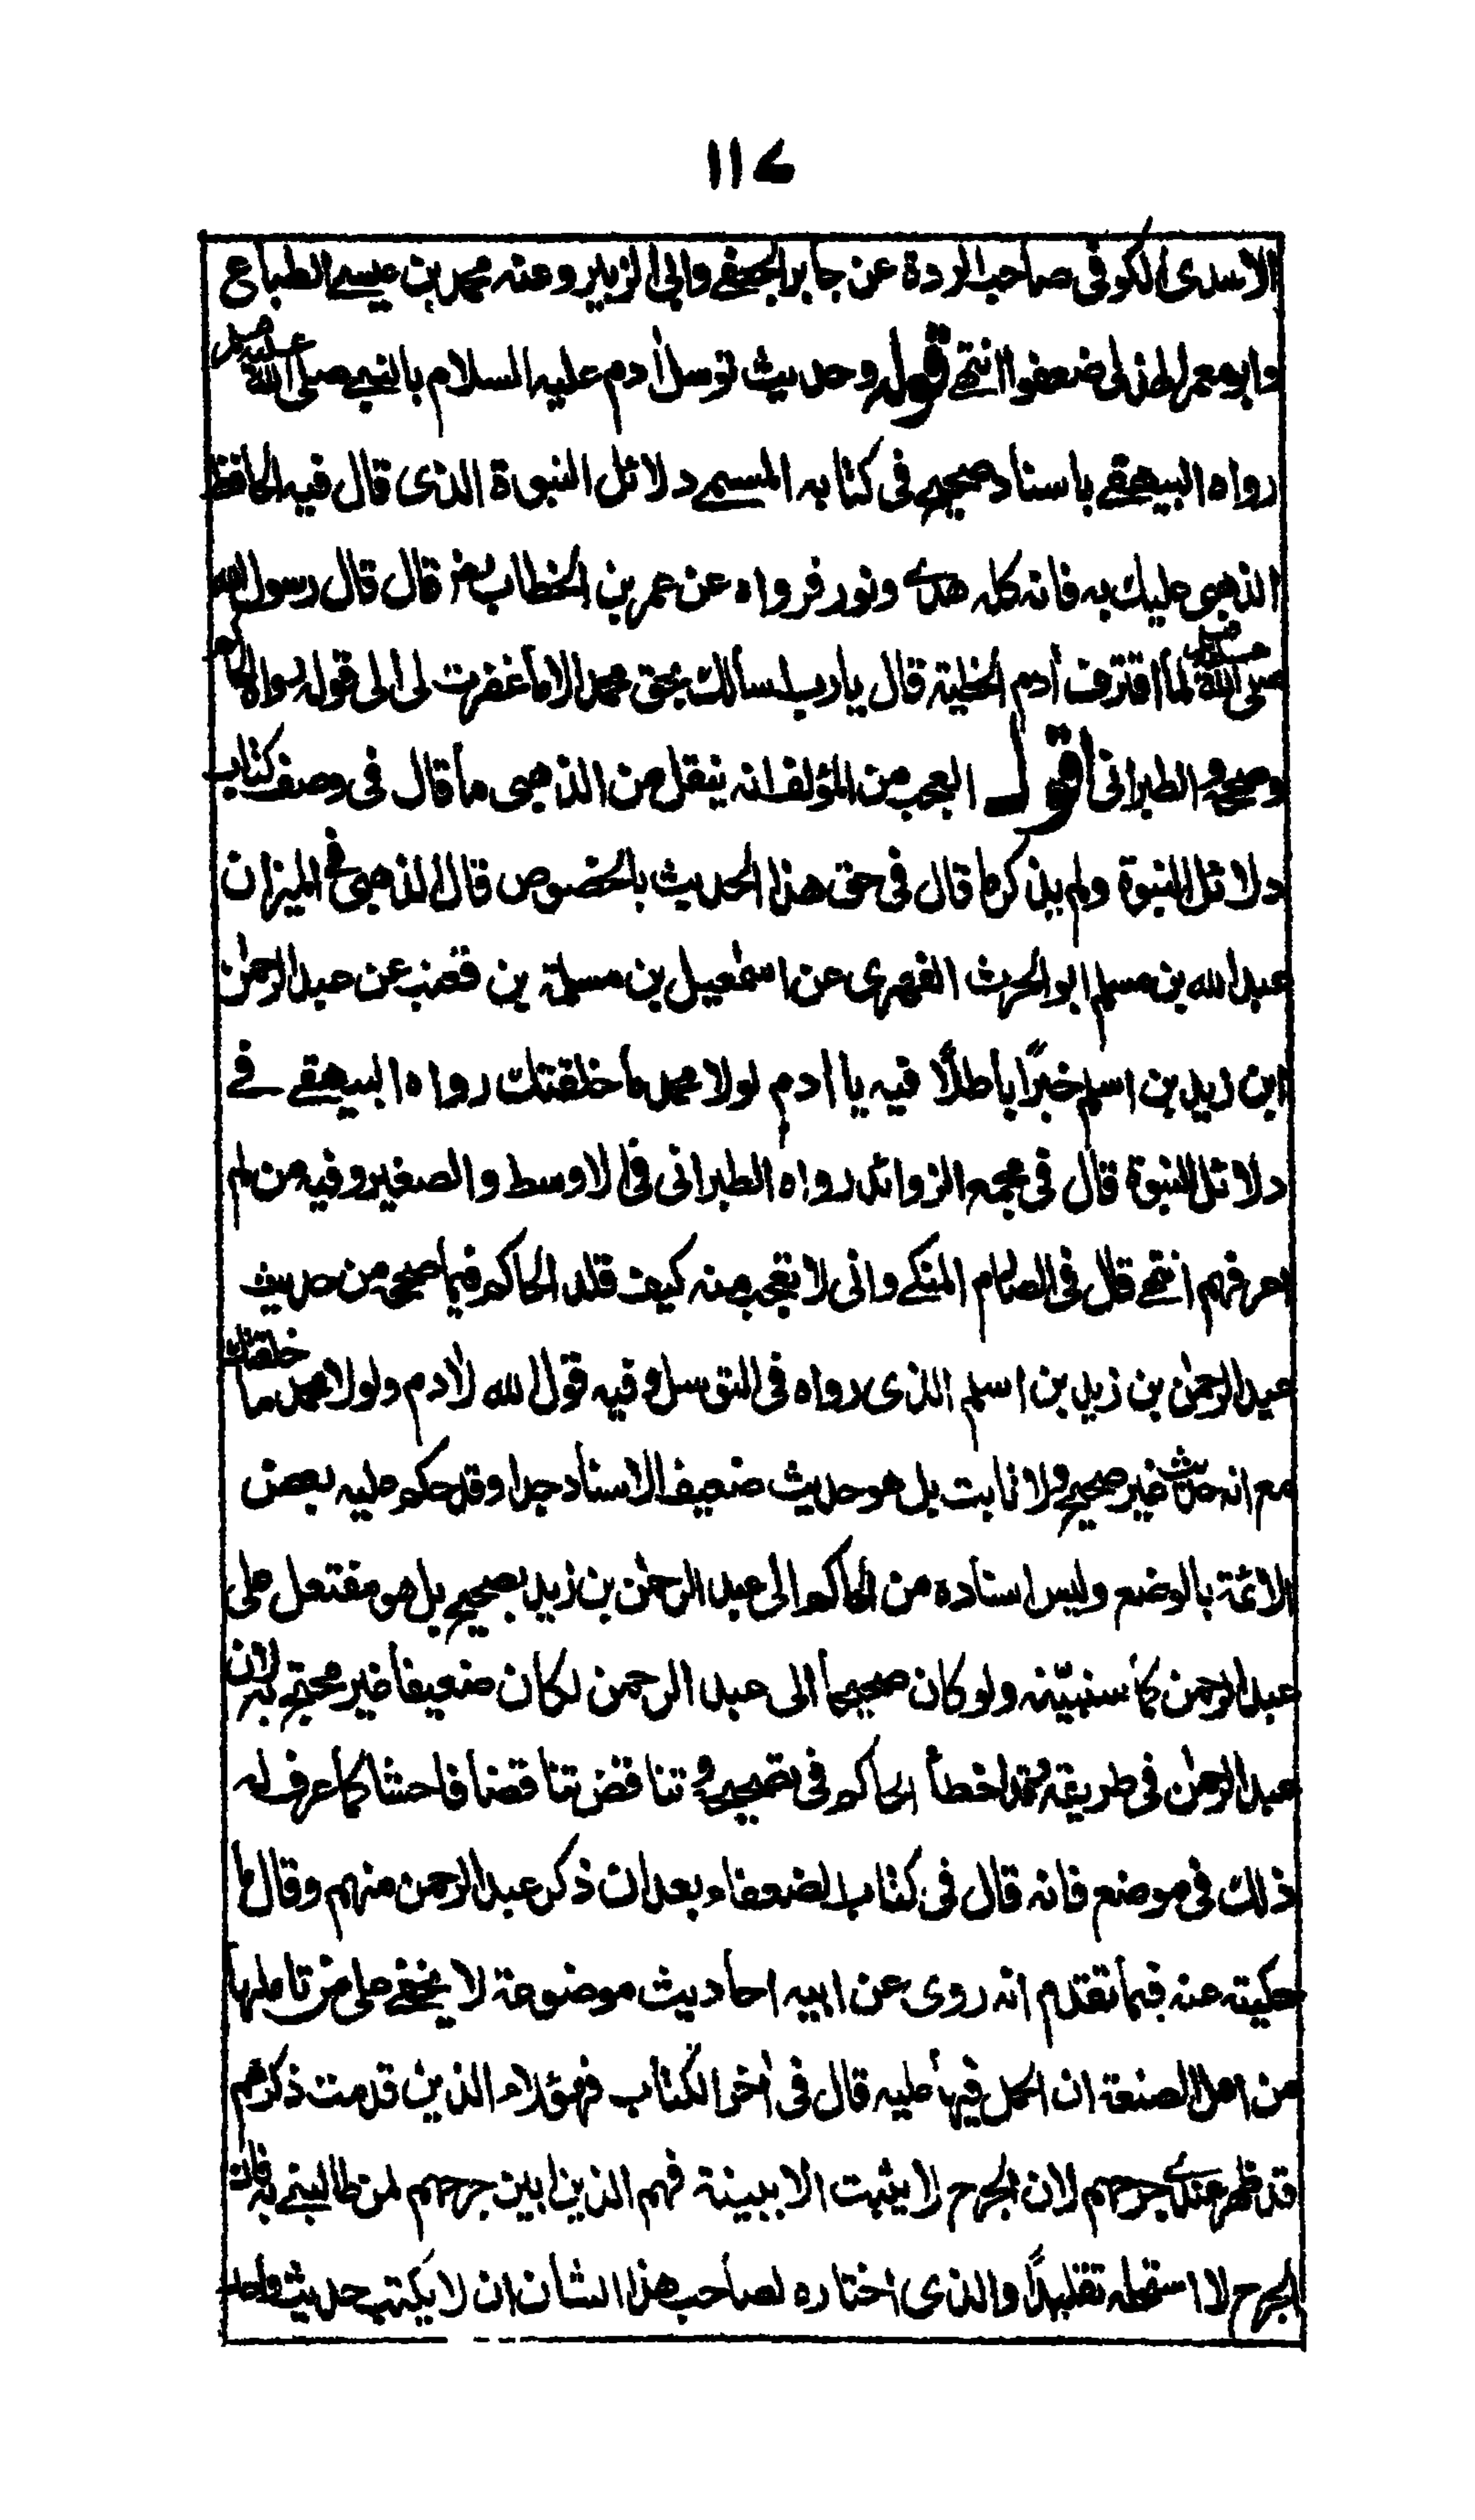 ١١٧
الاسدى الكوفى صاحب الردة عن جابر الجعفے وابى الزبير وعنه محمد بن عيسے الطباع
وابو معمر الهذلى ضعفوا انتهے قوله وحديث توسل اٰدم عليه السلام بالنبے صلى الله عليه وسلم
رواه البيهقے باسناد صحيح فى كتابه المسمے دلائل النبوة الذى قال فيه الحافظ
الذهبى عليك به فانه كله هدى ونور فرواه عن عمر بن الخطاب رضـ قال قال رسول الله
صلى الله عليه وسلم لما اقترف اٰدم الخطيئة قال يا رب اسألك بحق محمد الا ما غفرت لى الى قوله رواه الحاكم
وصححه والطبرانى اقول العجب من المؤلف انه ينقل من الذهبى ما قال فى وصف كتاب
دلائل النبوة ولم يذكر ما قال فى حق هذا الحديث بالخصوص قال الذهبى فى الميزان
عبد الله بن مسلم ابو الحرث الفهرى عن اسمٰعيل بن مسلمة بن قعنب عن عبد الرحمٰن
ابن زيد بن اسلم خبرًا باطلًا فيه يا اٰدم لولا محمد ما خلقتك رواه البيهقے فے
دلائل النبوة قال فى مجمع الزوائد رواه الطبرانى فى الاوسط والصغير وفيه من لم
اعرفهم انتهے قال فى الصارم المنكے وانى لا تعجب منه كيف قلد الحاكم فيما صححه من حديث
عبد الرحمٰن بن زيد بن اسلم الذى رواه فى التوسل وفيه قول الله لاٰدم ولولا محمد ما خلقتك
مع انه حديث غير صحيح ولا ثابت بل هو حديث ضعيف الاسناد جدا وقد حكم عليه بعض
الائمة بالوضع وليس اسناده من الحاكم الى عبد الرحمٰن بن زيد بصحيح بل هو مفتعل على
عبد الرحمن كما سنبينه ولو كان صحيحا الى عبد الرحمن لكان ضعيفا غير محتج به لان
عبد الرحمٰن فى طريقه وقد اخطأ الحاكم فى تصحيحه وتناقض تناقضا فاحشا كما عرف له
ذلك فى موضع فانه قال فى كتاب الضعفاء بعد ان ذكر عبد الرحمن منهم وقال ما
حكيته عنه فيما تقدم انه روى عن ابيه احاديث موضوعة لا يخفے على من تاملها
من اهل الصنعة ان الحمل فيها عليه قال فى اٰخر الكتاب فهؤلاء الذين قدمت ذكرهم
قد ظهر عندى جرحهم لان الجرح لا يثبت الا ببينة فهم الذين ابين جرحهم لمن طالبنے به فان
الجرح لا استحله تقليدًا والذى اختاره لصاحب هذا الشان ان لا يكتب حديث واحد